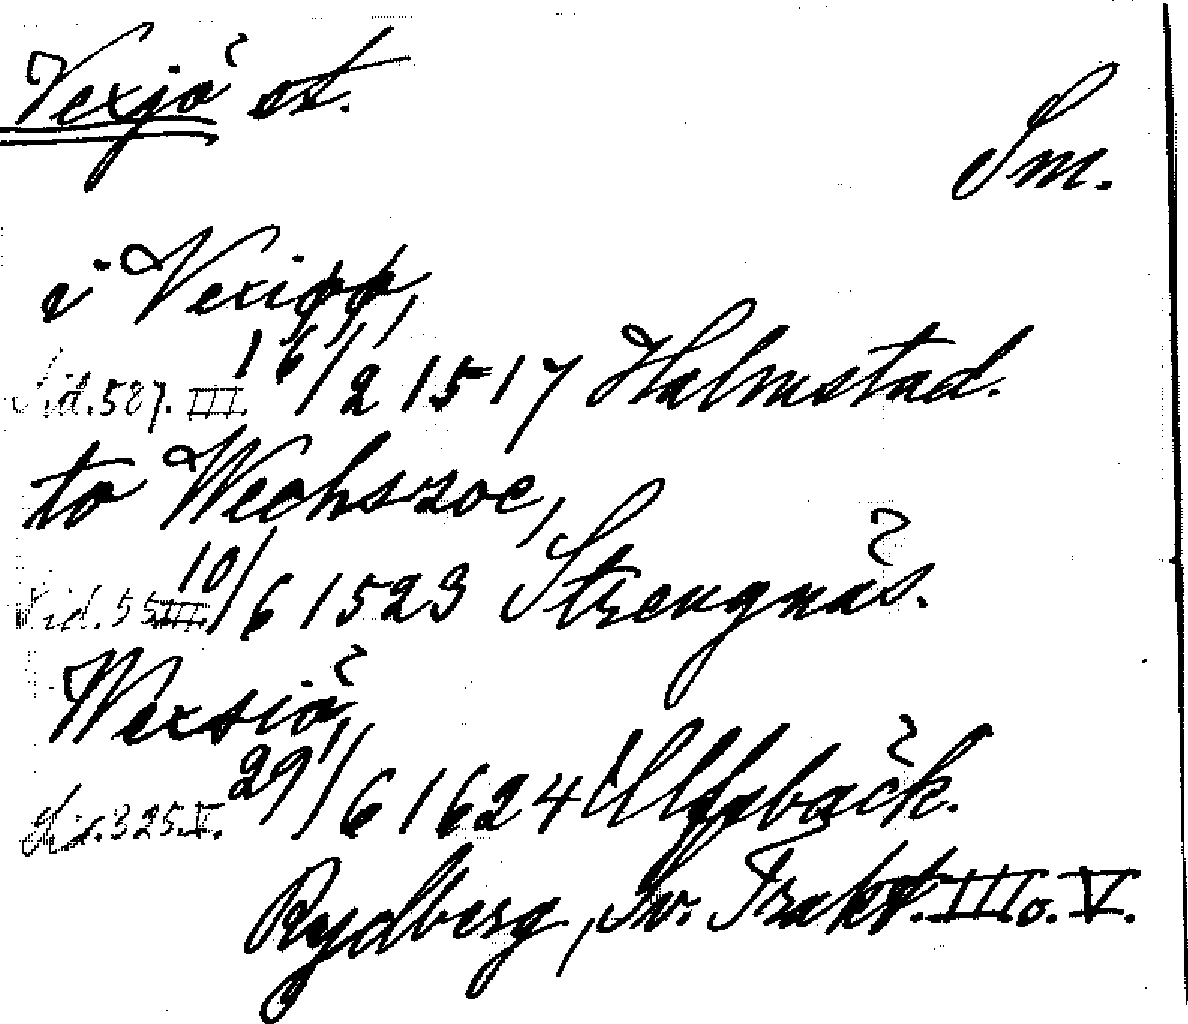 Vexjö st.
Sm.
i Vexiöö,
Sid. 587. III. 16/2 1517 Halmstad.
to Wechszoe,
Sid. 55 III. 10/6 1523 Strengnäs.
Wexsiö,
Sid. 325. V. 29/6 1624 Ulfsbäck.
Rydberg, Sv. Trakt. III o. V.